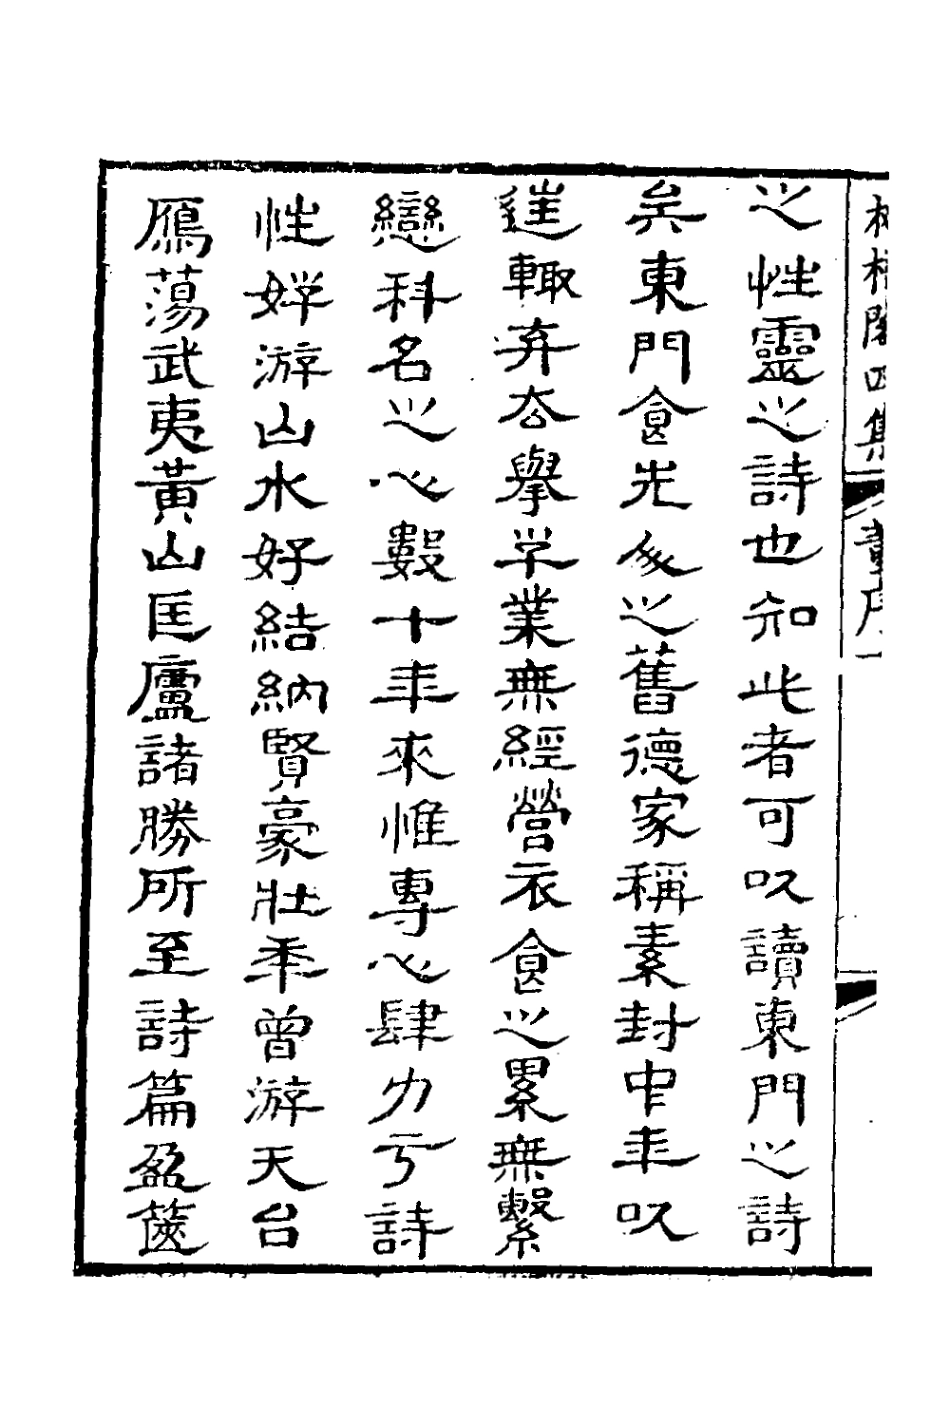 四集
之性靈之詩也知此者可㕥讀東門之詩
矣東門食先之舊德家稱素封中年㕥
往輒弃去舉学業無經營衣食之累無繫
戀科名之心數十年來惟專心肆力亏詩
性游山水好結納賢豪壯年曾游天台
鴈蕩武夷黃山匡廬諸勝所至詩篇盈篋